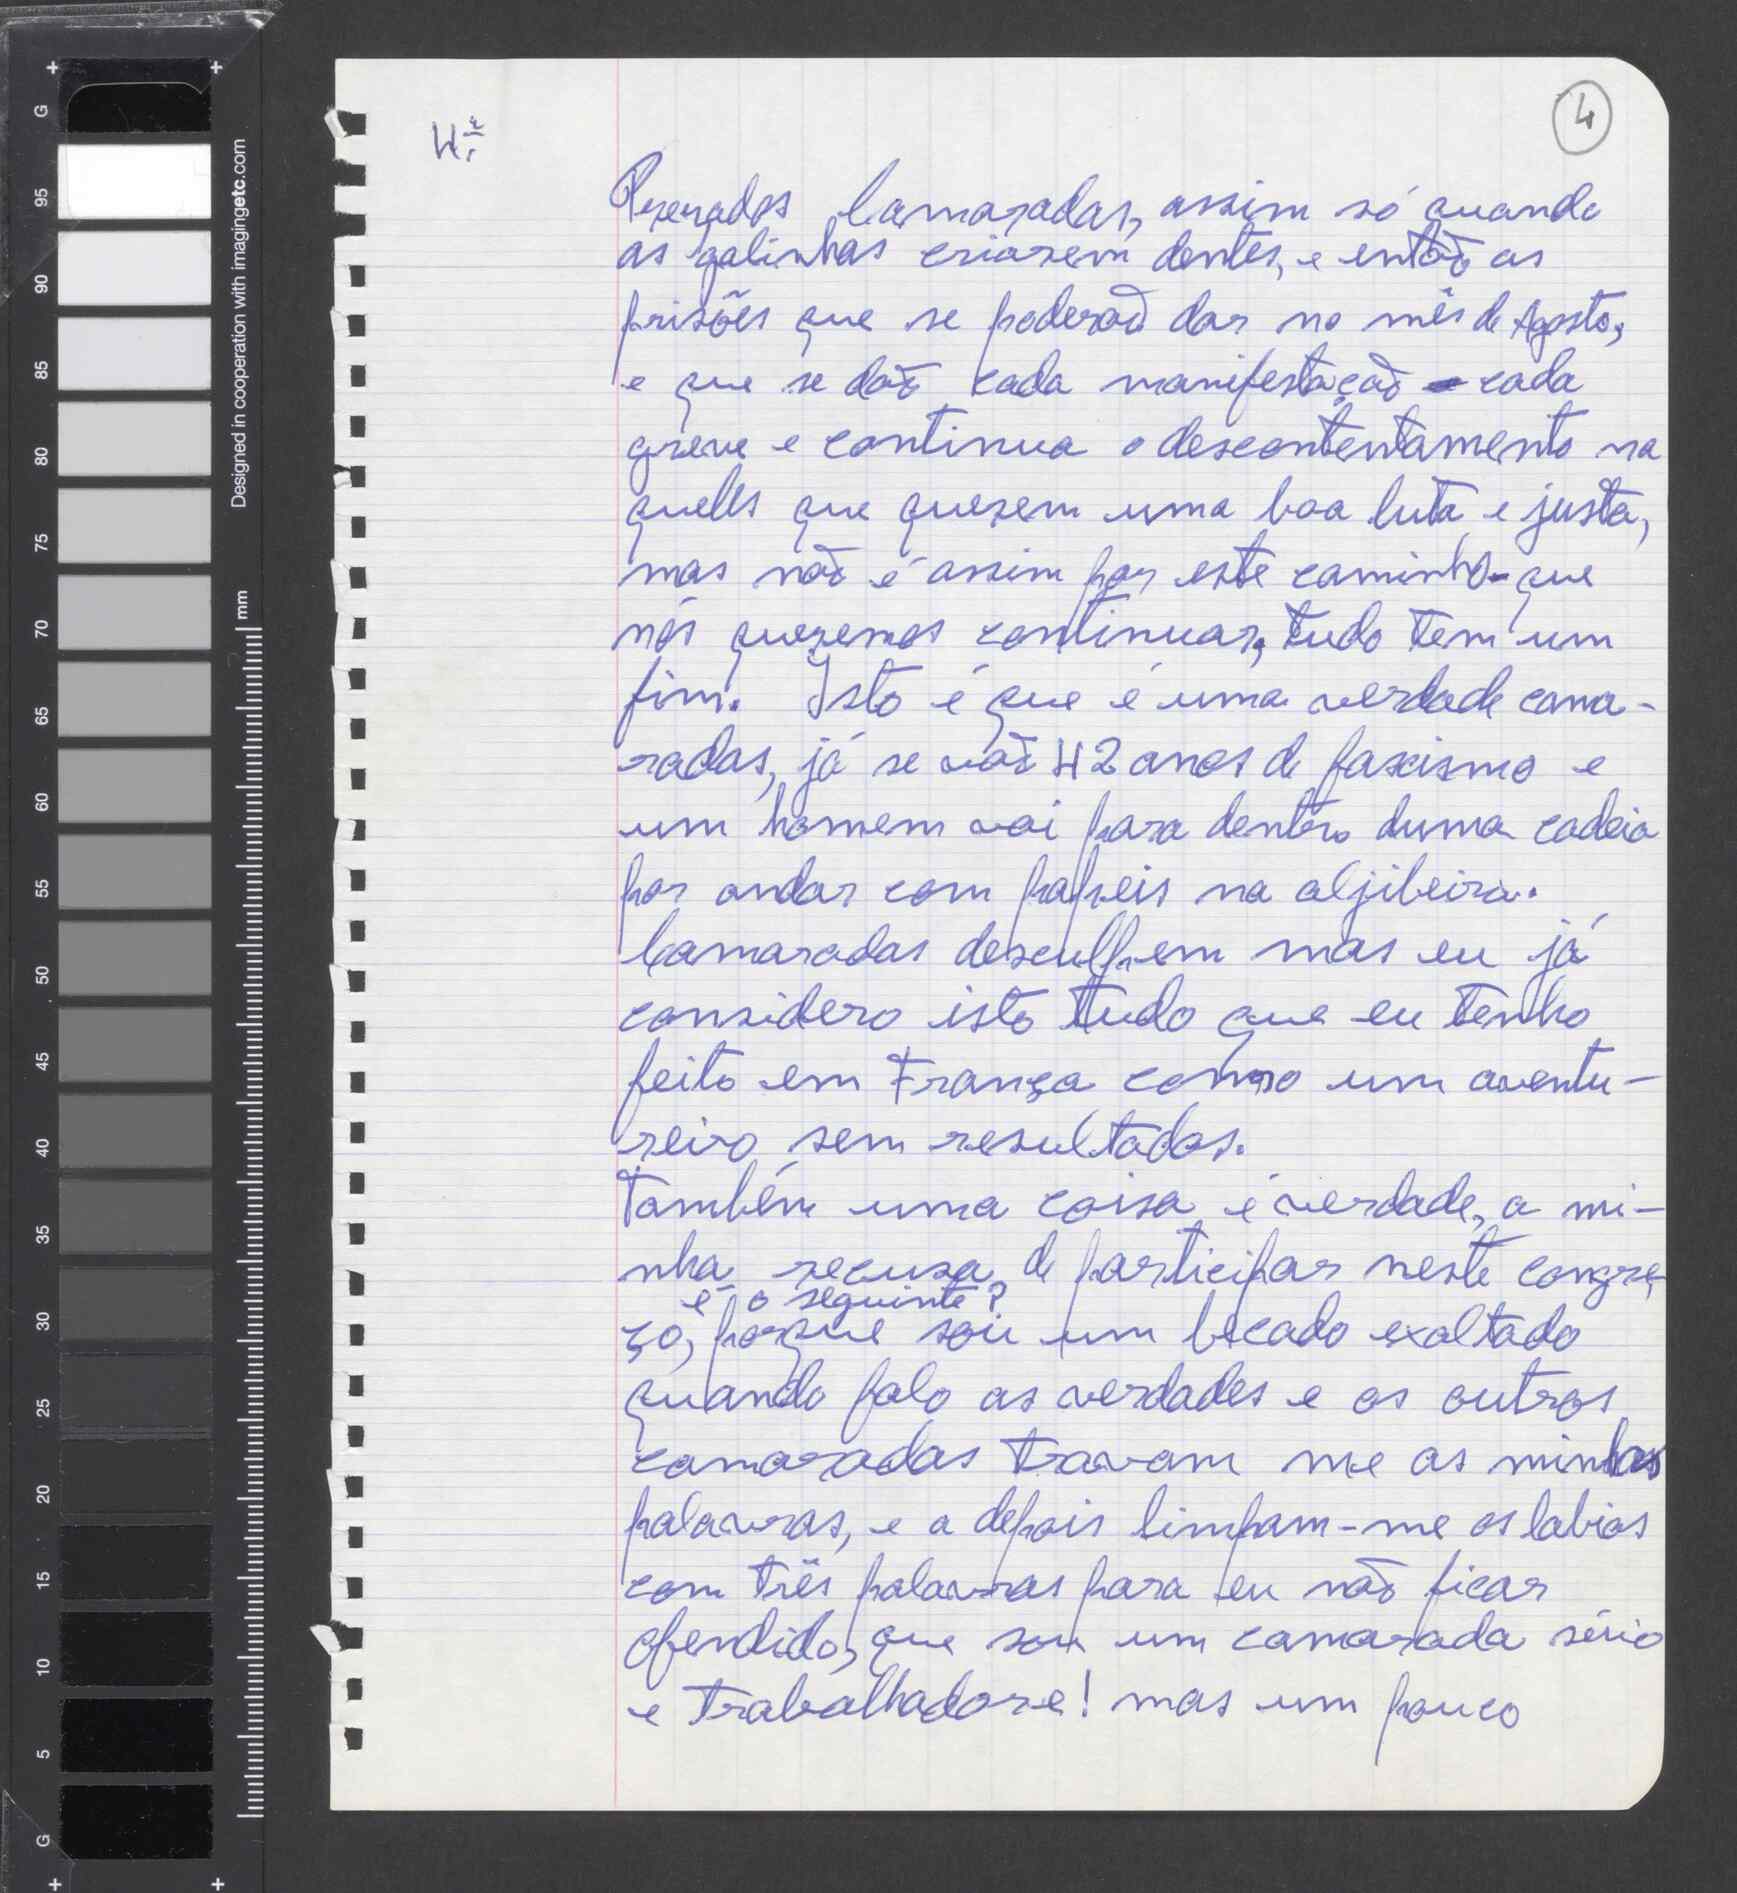 4
Prezados Camaradas, assim só quando
as galinhas criarem dentes, e então as
prisões que se poderaõ dar no mês de Agosto,
e que se dão cada manifestação cada
greve e continua o descontentamento na
quelles que querem uma boa luta e justa,
mas não é assim por este caminho que
nós queremos continuar, tudo tem um
fim. Isto é que é uma verdade cama-
radas, já se vão 42 anos de fascismo e
um homem vai para dentro duma cadeia
por andar com papeis na aljibeira.
Camaradas desculpem mas eu já
considero isto tudo que eu tenho
feito em França como um aventu-
reiro sem resultados.
Também uma coisa é verdade, a mi-
nha recusa de participar neste congre-
é o seguinte?
ço, porque sou um becado exaltado
quando falo as verdades e os outros
camaradas travam me as minhas
palavras, e a depois limpam-me os labios
com três palavras para eu não ficar
ofendido, que sou um camarada sério
e trabalhadore! mas um pouco
G
95
90
85
80
75
70
65
60
55
50
45
40
35
30
25
20
15
10
5
G
Designed in cooperation with imagingetc.com
mm